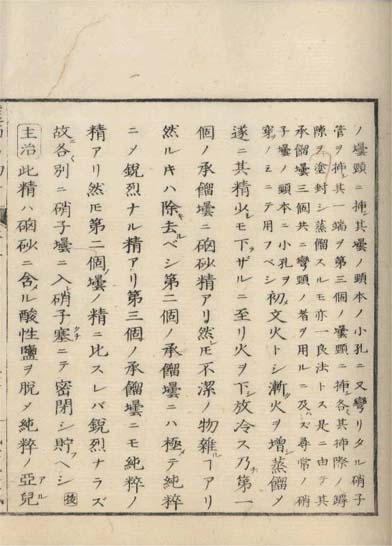 ノ壜頸ニ挿ミ其壜ノ頭本ノ小孔ニ又彎リタル硝子
管ヲ挿ミ其一端ヲ第三個ノ壜頸ニ挿ミ各其挿際ノ罅
隙ヲ塗封シ蒸餾スルモ亦一良法トス是ニ由テ其
承餾壜三個共ニ彎頸ノ者ヲ用ルニ及ハズ尋常ノ硝
子壜ノ頭本ニ小孔ヲ穿ノミニテ用フベシ初文火トシ漸ク火ヲ増シ蒸餾メ
遂ニ其精少シモ下ザルニ至リ火ヲ下シ放冷ス乃チ第一
個ノ承餾壜ニ硇砂精アリ然𪜈不潔ノ物雜ヿアリ
然ルキハ除去ルベシ第二個ノ承餾壜ニハ極メテ純粹
ニメ鋭烈ナル精アリ第三個ノ承餾壜ニモ純粹ノ
精アリ然𪜈第二個壜ノ精ニ比スレバ鋭烈ナラズ
故各別ニ硝子壜ニ入レ硝子塞ニテ密閉シ貯フヘシ
主治 此精ハ硇砂ニ含メル酸性鹽ヲ脱メ純粹ノ亞兒